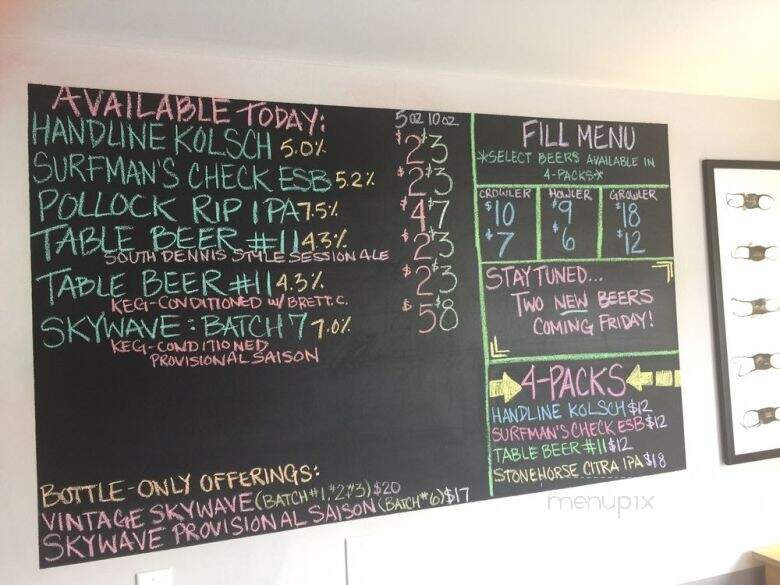 AVAILABLE TODAY:
5oz 10oz
HANDLINE KOLSCH 5.0% $2 $3
SURFMAN'S CHECK ESB 5.2% $2 $3
POLLOCK RIP IPA 7.5% $4 $7
TABLE BEER #11 4.3% $2 $3
SOUTH DENNIS STYLE SESSION ALE
TABLE BEER #11 4.3% $2 $3
KEG-CONDITIONED W/ BRETT. C.
SKYWAVE: BATCH 7 7.0% $5 8
KEG-CONDITIONED
PROVISIONAL SAISON
BOTTLE-ONLY OFFERINGS:
VINTAGE SKYWAVE (BATCH #1, #2, #3) $20
SKYWAVE PROVISIONAL SAISON (BATCH #6) $17
FILL MENU
*SELECT BEERS AVAILABLE IN
4-PACKS*
CROWLER HOWLER GROWLER
$10 $9 $18
$7 $6 $12
STAY TUNED...
TWO NEW BEERS
COMING FRIDAY!
4-PACKS
HANDLINE KOLSCH $12
SURFMAN'S CHECK ESB $12
TABLE BEER #11 $12
STONEHORSE CITRA IPA $18
menupix